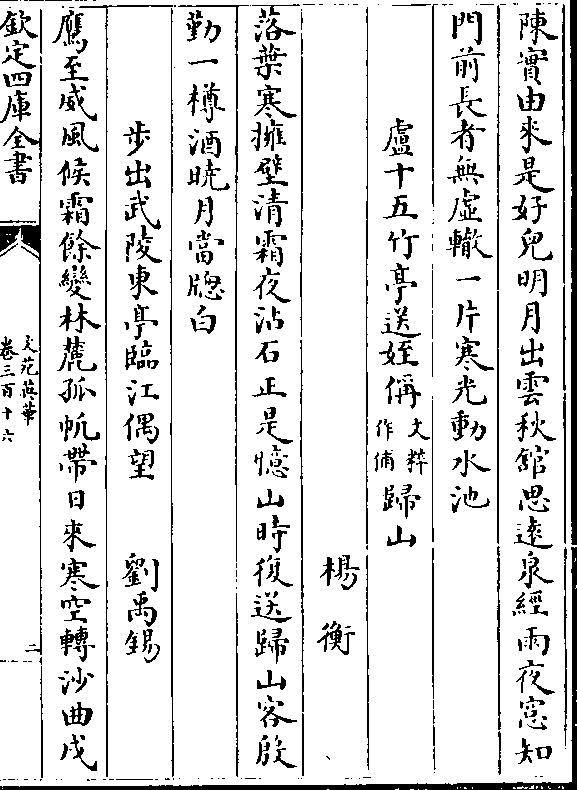 陳實由來是好兒明月出雲秋館思遠泉經雨夜窓知
門前長者無虛轍一片寒光動水池
盧十五竹亭送姪偁文粹作俌歸山
楊衡
落葉寒擁壁清霜夜沾石正是憶山時復送歸山客殷
勤一樽酒曉月當牕白
步出武陵東亭臨江偶望
劉禹錫
鷹至感風候霜餘變林麓孤帆帶日來寒空轉沙曲戍
欽定四庫全書
文苑英華
卷三百十六
二